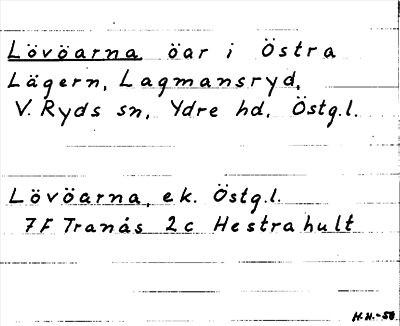 Lövöarna öar i Östra
Lägern, Lagmansryd,
V. Ryds sn, Ydre hd, Östg.l.
Lövöarna, ek. Östg.l.
7F Tranås 2c Hestrahult
H.H.-58